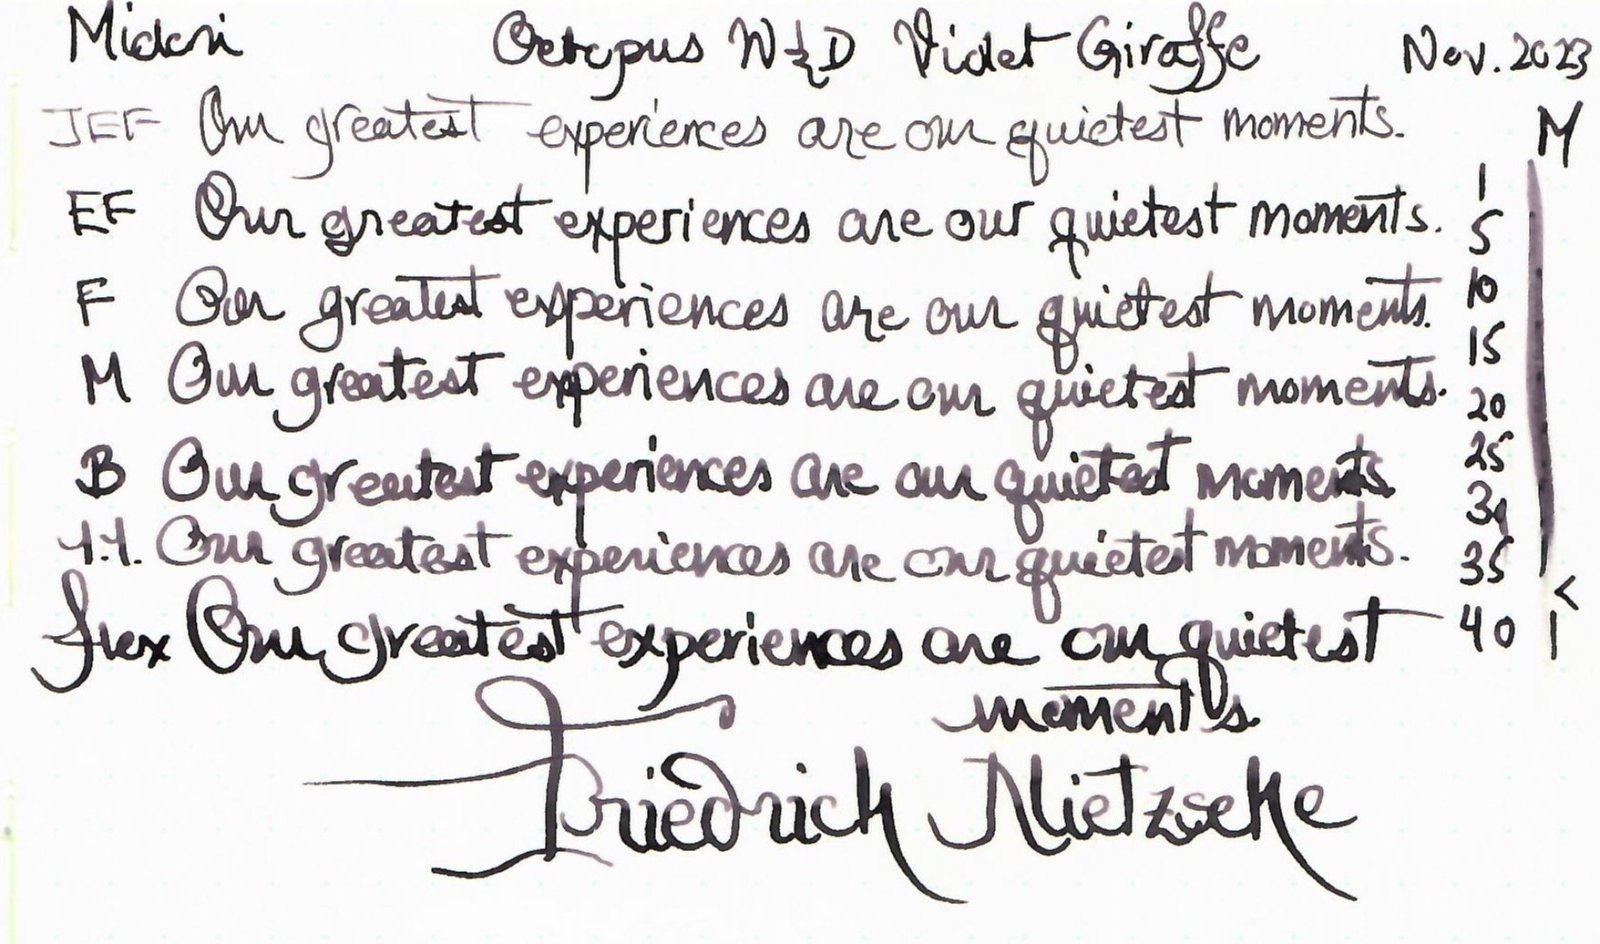 Midori Octopus W&D Violet Giraffe Nov. 2023
JEF Our greatest experiences are our quietest moments. M
EF Our greatest experiences are our quietest moments. 1
5
F Our greatest experiences are our quietest moments. 10
15
M Our greatest experiences are our quietest moments. 20
B Our greatest experiences are our quietest moments 25
30
1.1. Our greatest experiences are our quietest moments. 35 <
flex Our greatest experiences are our quietest 40
moments.
Friedrich Nietzsche